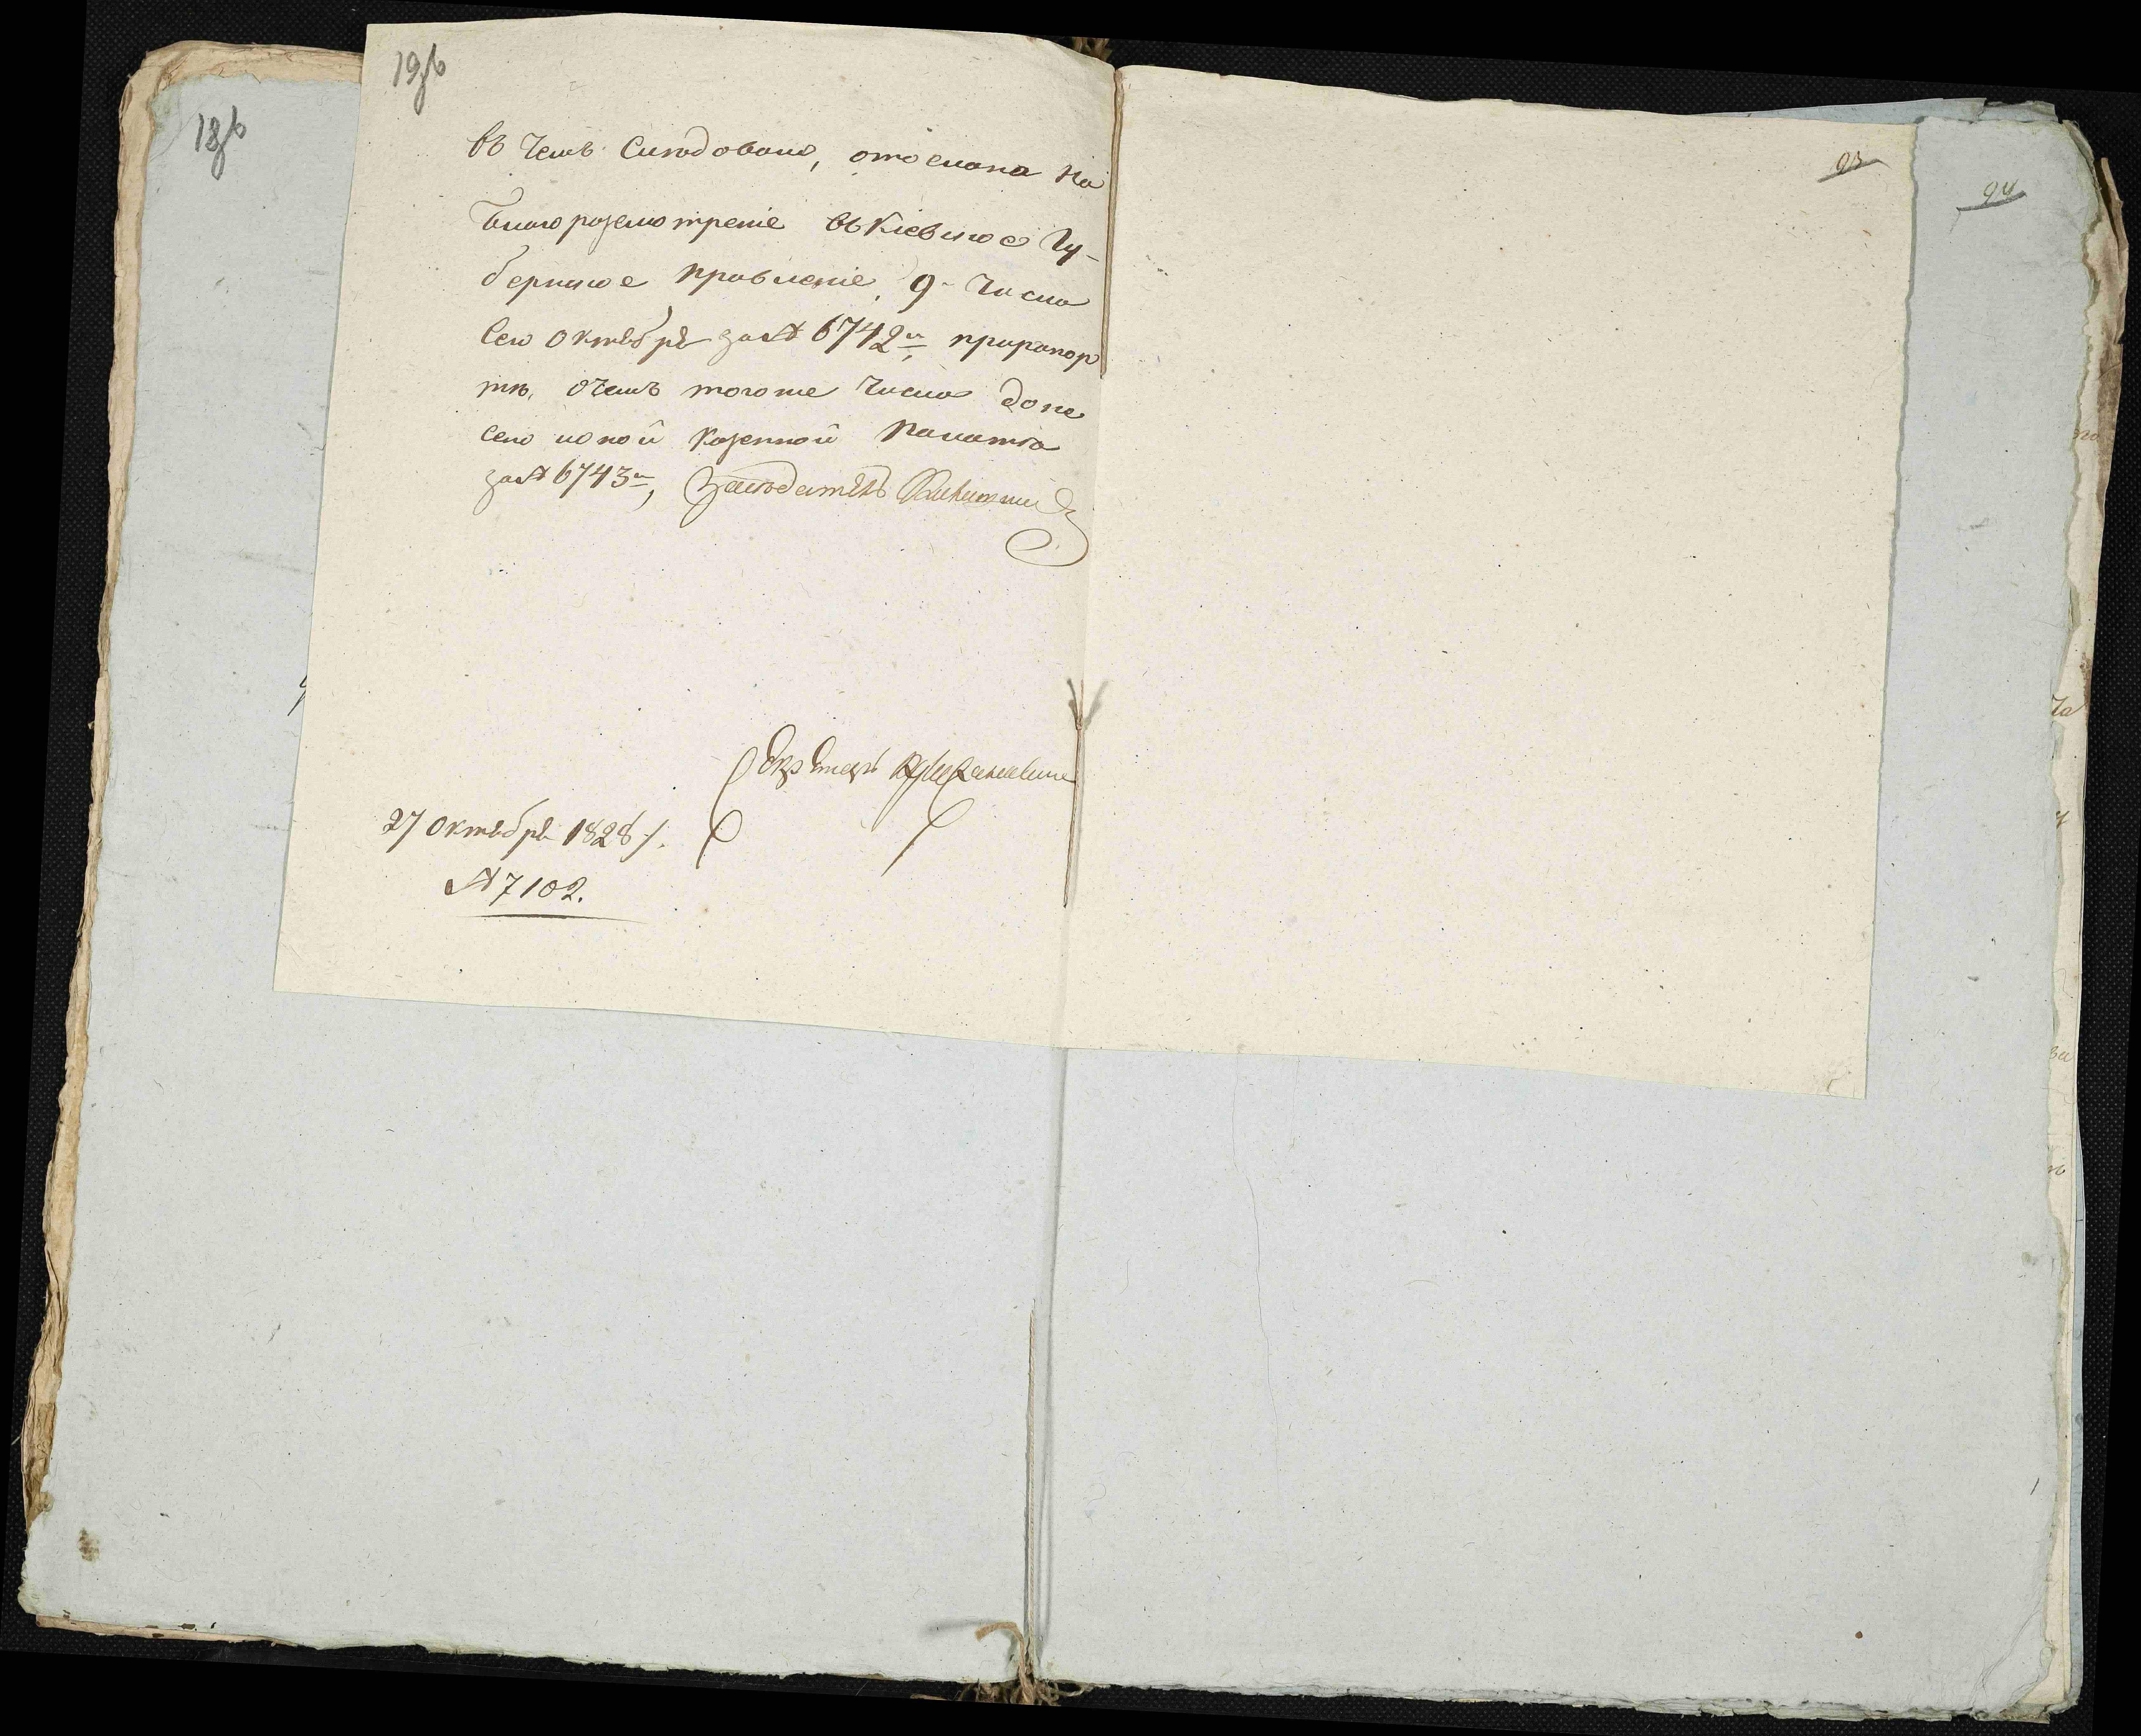 18об
19об
въ чемъ Слѣдовано, отослана на
благоразсмотреніе въ Кіевское Гу-
бернское правленіе, 9. Числа
сего октября за № 6742м, прирапор
тѣ, очемъ тогоже числа доне
сено и оной Казенной Палатѣ
за № 6743м, Засѣдатель
Секретарь
27 октября 1828 г.
№ 7102.
93
94